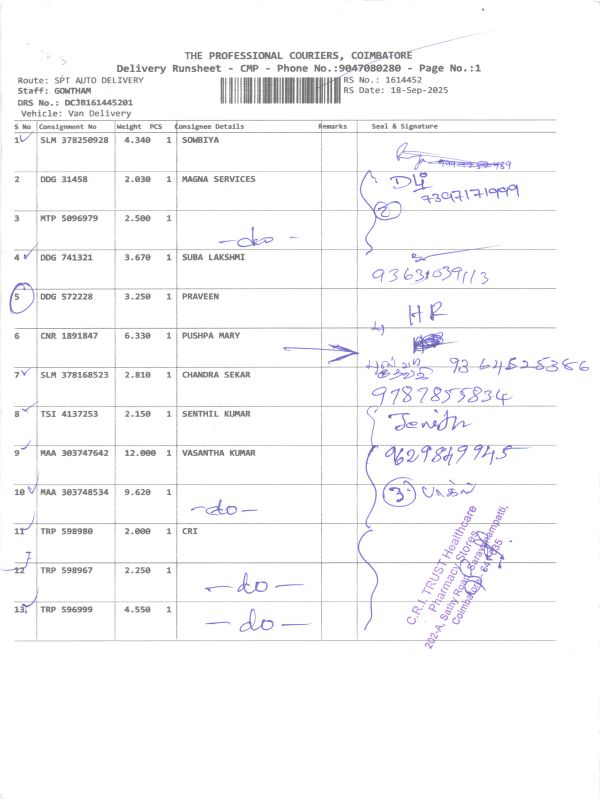 THE PROFESSIONAL COURIERS, COIMBATORE
Delivery Runsheet - CMP - Phone No.:9047080280 - Page No.:1
Route: SPT AUTO DELIVERY
RS No.: 1614452
Staff: GOWTHAM
RS Date: 18-Sep-2025
DRS No.: DCJB161445201
Vehicle: Van Delivery
S No Consignment No Weight PCS Consignee Details Remarks Seal & Signature
1 SLM 378250928 4.340 1 SOWBIYA
2 DDG 31458 2.030 1 MAGNA SERVICES
7397171999
2
3 MTP 5096979 2.500 1
-do-
4 DDG 741321 3.670 1 SUBA LAKSHMI
5 DDG 572228 3.250 1 PRAVEEN
HR
6 CNR 1891847 6.330 1 PUSHPA MARY
9364525386
7 SLM 378168523 2.810 1 CHANDRA SEKAR
9787855834
8 TSI 4137253 2.150 1 SENTHIL KUMAR
9 MAA 303747642 12.000 1 VASANTHA KUMAR
9629849945
10 MAA 303748534 9.620 1
-do-
3
11 TRP 598980 2.000 1 CRI
12 TRP 598967 2.250 1
-do-
13 TRP 596999 4.550 1
-do-
C.R.I. TRUST Healthcare
Pharmacy Stores
202-A, Sathy Road, Saravanampatti,